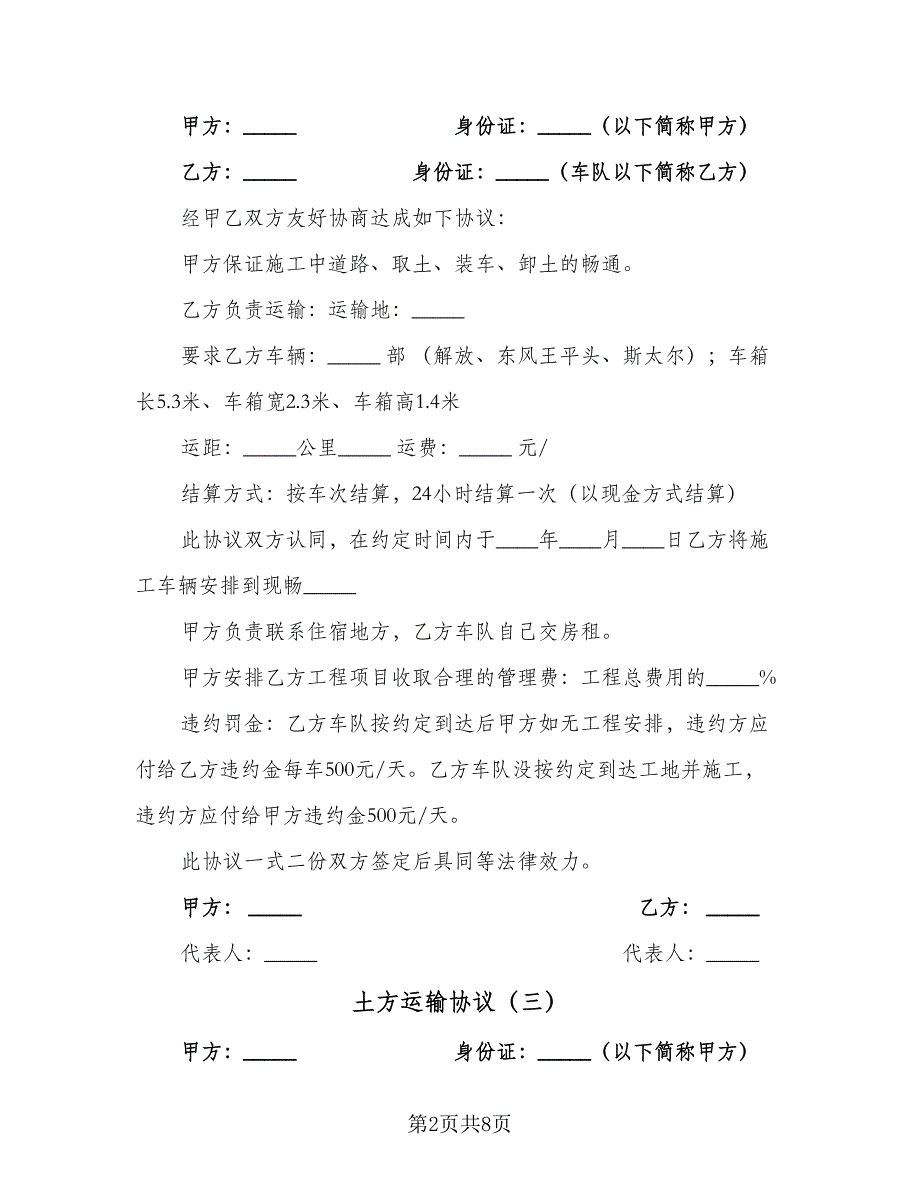 甲方：_____ 身份证：_____（以下简称甲方）
乙方：_____ 身份证：_____（车队以下简称乙方）
经甲乙双方友好协商达成如下协议：
甲方保证施工中道路、取土、装车、卸土的畅通。
乙方负责运输：运输地：_____
要求乙方车辆：_____ 部 （解放、东风王平头、斯太尔）；车箱
长5.3米、车箱宽2.3米、车箱高1.4米
运距：_____公里_____ 运费：_____ 元/
结算方式：按车次结算，24小时结算一次（以现金方式结算）
此协议双方认同，在约定时间内于____年____月____日乙方将施
工车辆安排到现畅_____
甲方负责联系住宿地方，乙方车队自己交房租。
甲方安排乙方工程项目收取合理的管理费：工程总费用的_____%
违约罚金：乙方车队按约定到达后甲方如无工程安排，违约方应
付给乙方违约金每车500元/天。乙方车队没按约定到达工地并施工，
违约方应付给甲方违约金500元/天。
此协议一式二份双方签定后具同等法律效力。
甲方： _____ 乙方： _____
代表人：_____ 代表人：_____
土方运输协议（三）
甲方：_____ 身份证：_____（以下简称甲方）
第2页共8页